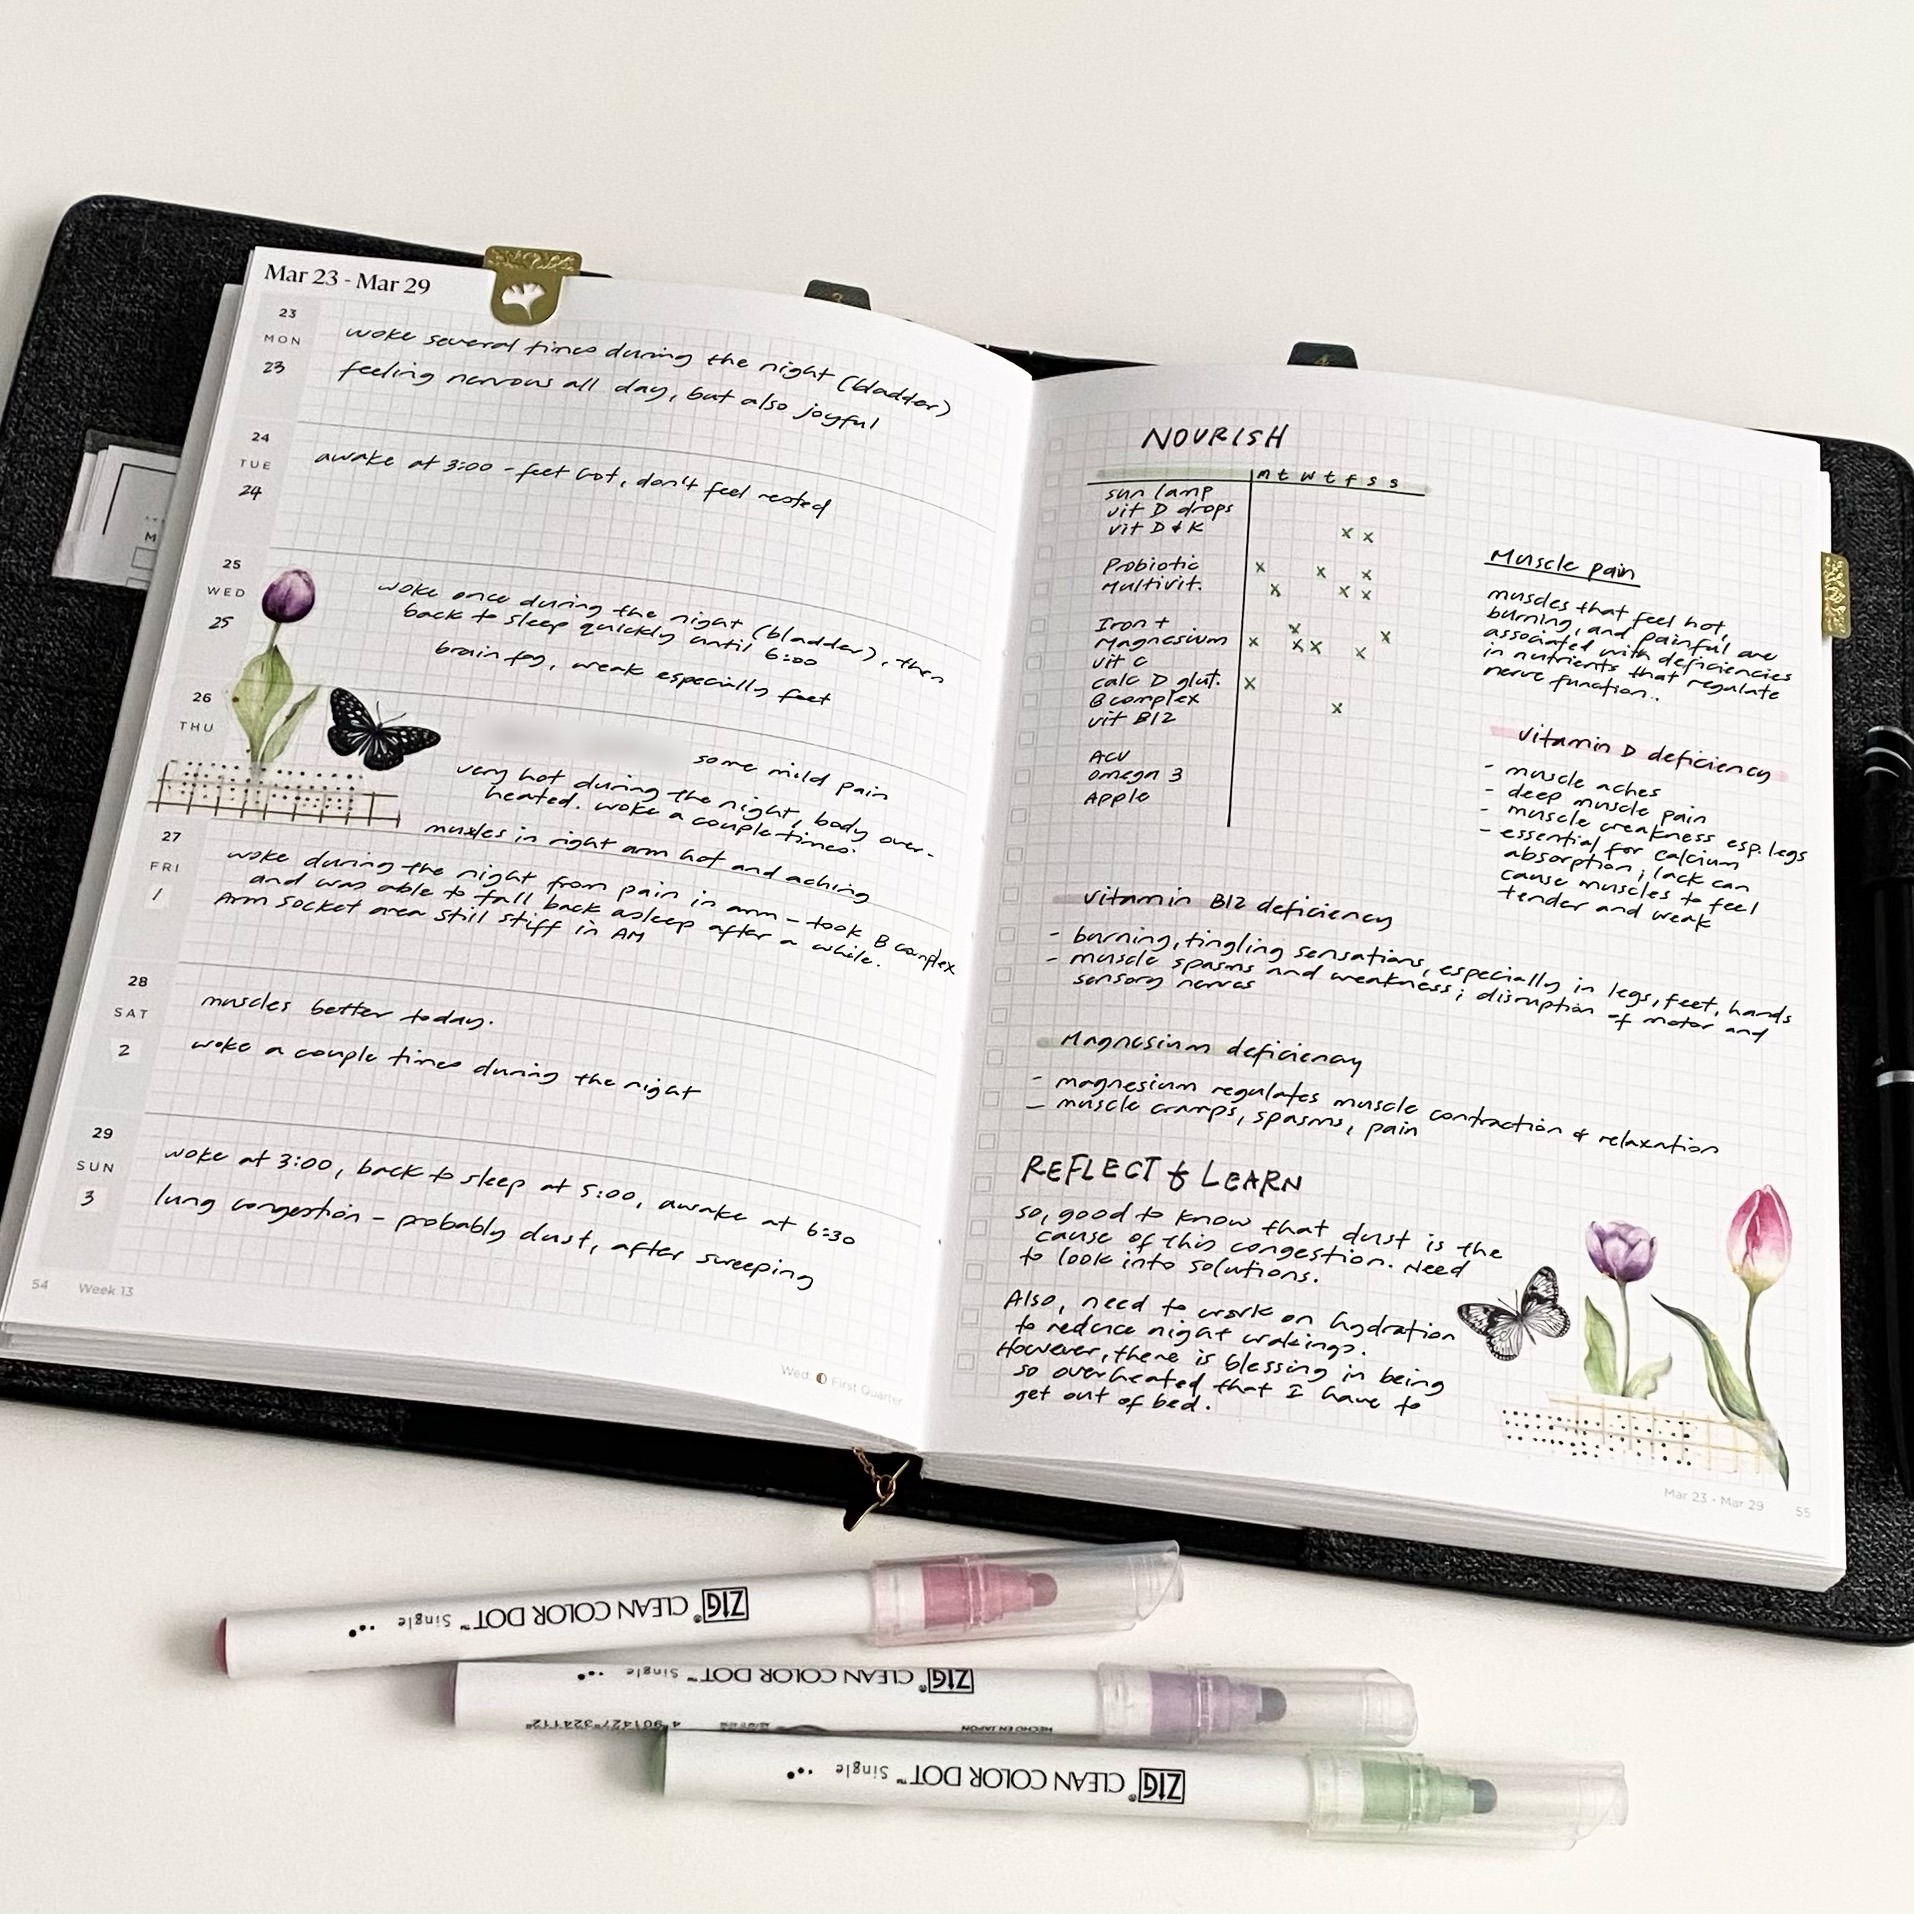 Mar 23 - Mar 29
23
MON
23
woke several times during the night (bladder)
feeling nervous all day, but also joyful
24
TUE
24
awake at 3:00 - feet hot, don't feel rested
25
WED
25
woke once during the night (bladder), then
back to sleep quickly until 6:00
brain fog, weak especially feet
26
THU
some mild pain
very hot during the night, body over-
heated. woke a couple times.
muscles in right arm hot and aching
27
FRI
1
woke during the night from pain in arm - took B complex
and was able to fall back asleep after a while.
Arm socket area still stiff in AM
28
SAT
2
muscles better today.
woke a couple times during the night
29
SUN
3
woke at 3:00, back to sleep at 5:00, awake at 6:30
lung congestion - probably dust, after sweeping
54 Week 13
Wed First Quarter
3
4
M
NOURISH
m t w t f s s
sun lamp
vit D drops
vit D & K x x
Probiotic x x x
Multivit. x x x
Iron + x x
Magnesium x x x x
vit C
calc D glut. x
B complex x
vit B12
ACV
omega 3
Apple
Muscle pain
muscles that feel hot,
burning, and painful are
associated with deficiencies
in nutrients that regulate
nerve function..
vitamin D deficiency
- muscle aches
- deep muscle pain
- muscle weakness esp. legs
- essential for calcium
absorption; lack can
cause muscles to feel
tender and weak
vitamin B12 deficiency
- burning, tingling sensations, especially in legs, feet, hands
- muscle spasms and weakness; disruption of motor and
sensory nerves
Magnesium deficiency
- magnesium regulates muscle contraction & relaxation
- muscle cramps, spasms, pain
REFLECT & LEARN
so, good to know that dust is the
cause of this congestion. Need
to look into solutions.
Also, need to work on hydration
to reduce night wakings.
However, there is blessing in being
so overheated that I have to
get out of bed.
Mar 23 - Mar 29 55
ZIG CLEAN COLOR DOT™ Single
ZIG CLEAN COLOR DOT™ Single
HECHO EN JAPON
4 901427 324112
ZIG CLEAN COLOR DOT™ Single